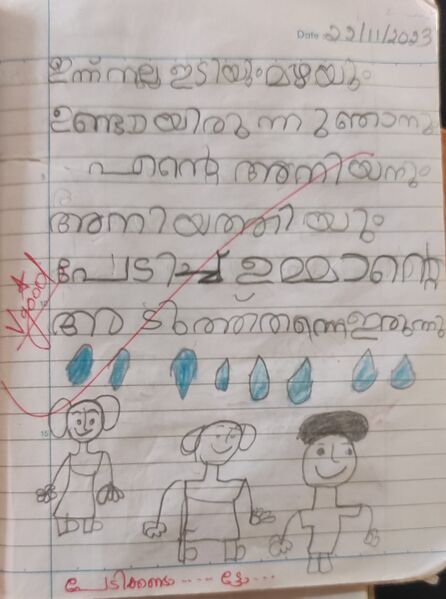 Date : 22/11/2023
ഇന്ന് നല്ല ഇടിയും മഴയും
ഉണ്ടായിരുന്നു ഞാനും
എന്റെ അനിയനും
അനിയത്തിയും
പേടിച്ച് ഉമ്മാന്റെ
അടുത്ത്തന്നെ ഇരുന്നു
V good
പേടിക്കണ്ടാ ..... ട്ടോ ...